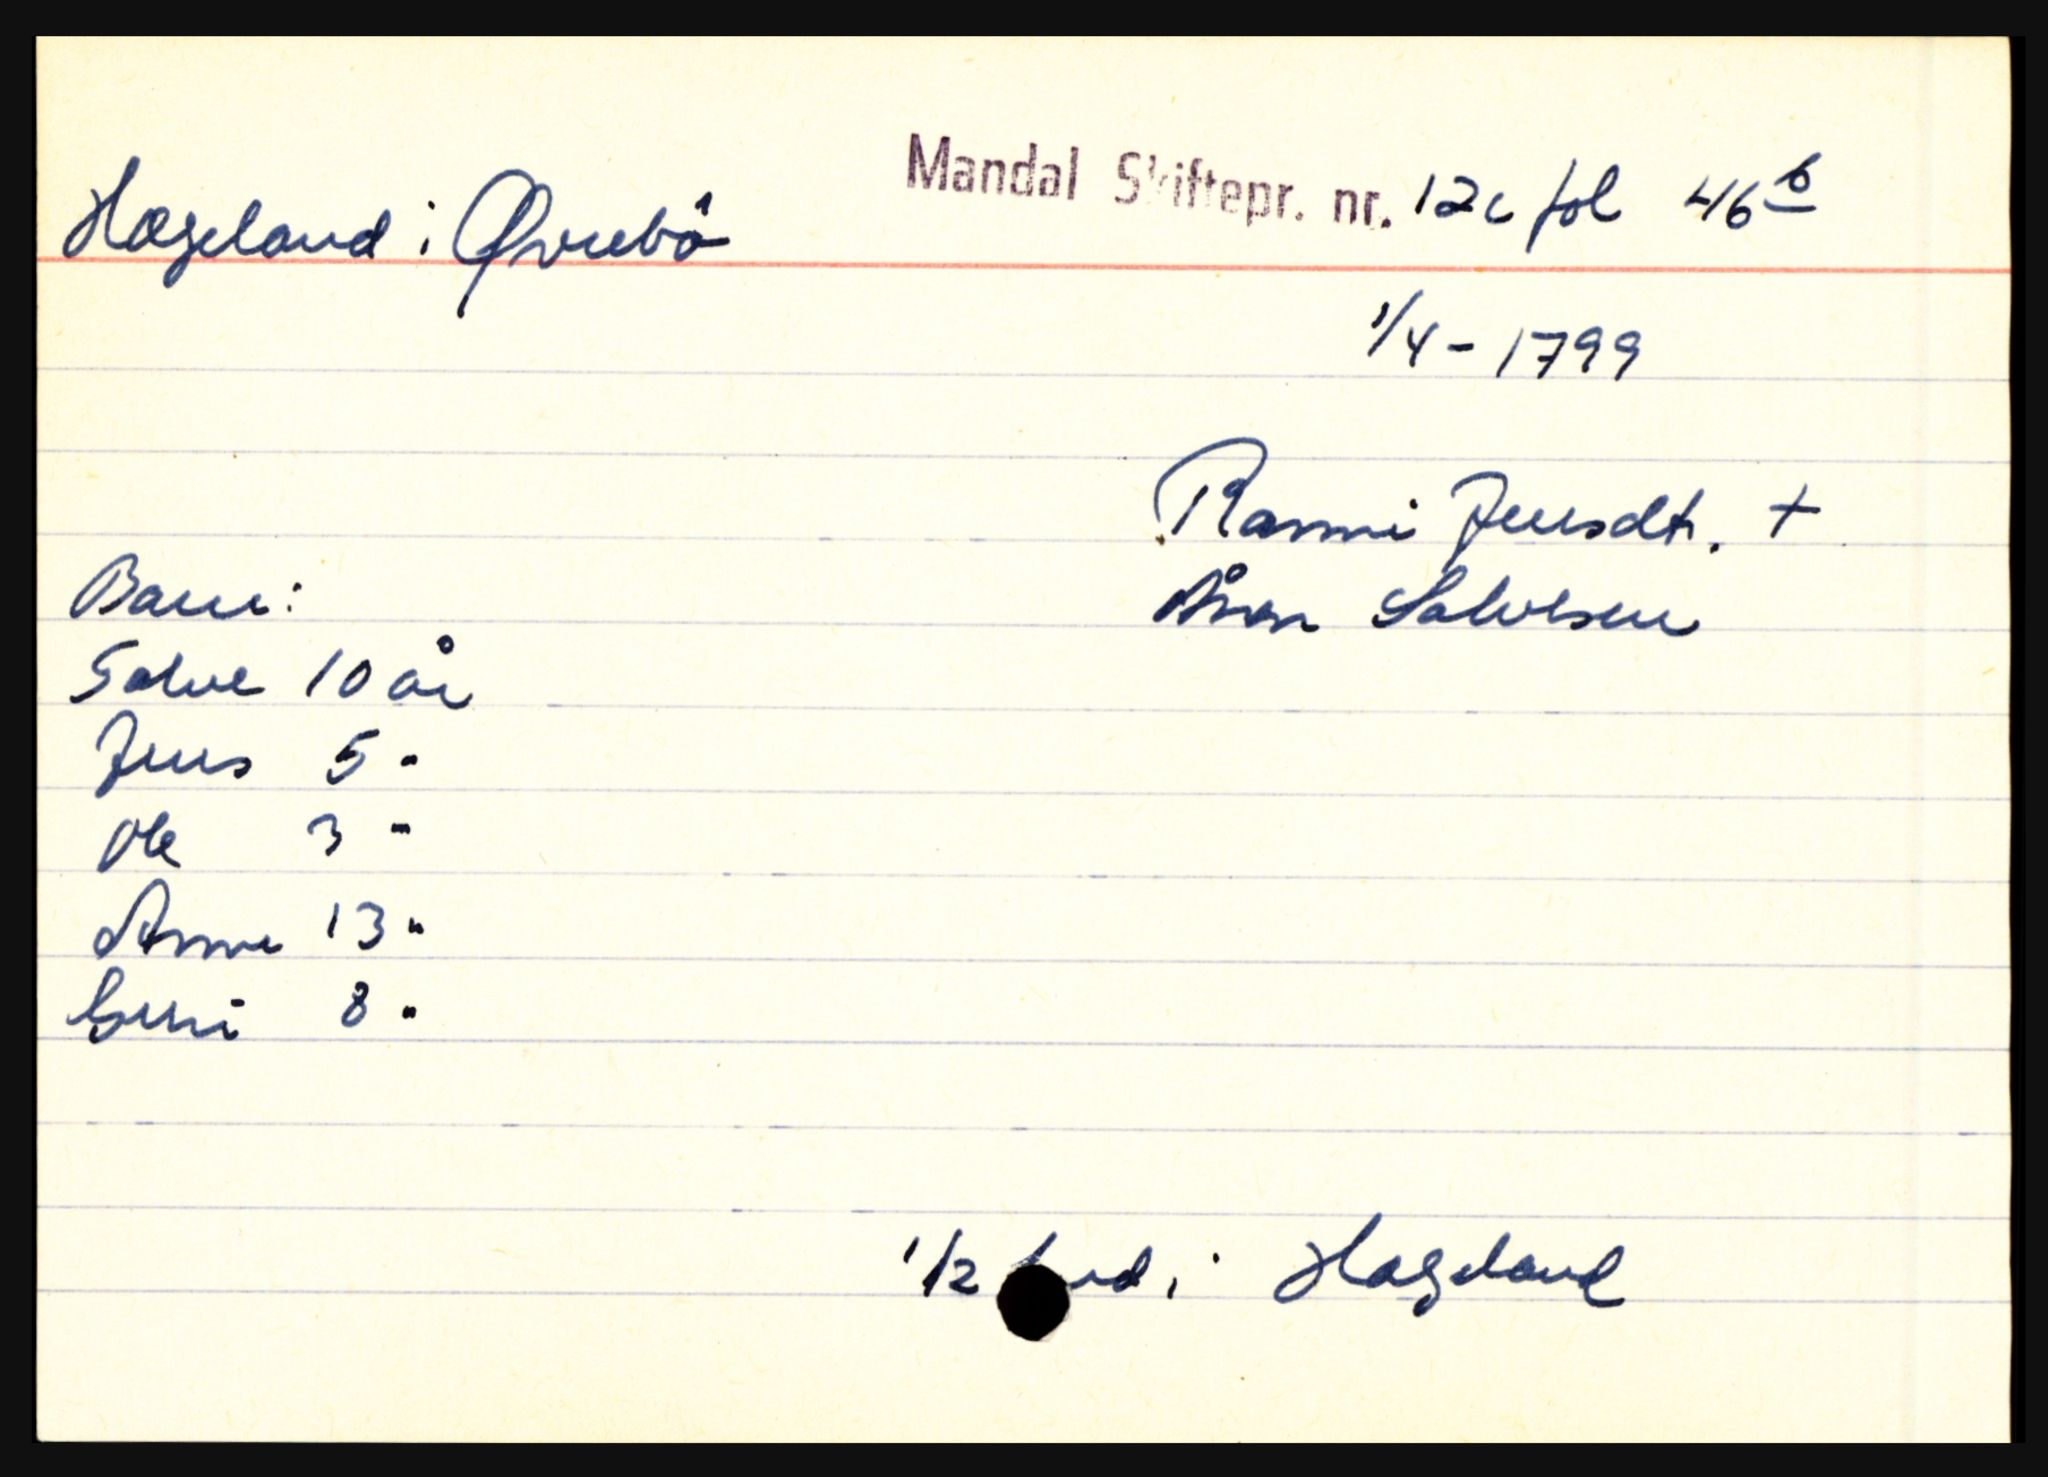 Mandal Skiftepr. nr. 12c fol 46 b
Hægeland i Øvrebö
1/4 - 1799
Ranni Jensdt. +
Barn:
Ånen Salvesen
Salve 10 år
Jens 5 "
Ole 3 "
Anne 13 "
Guri 8 "
1/2 hud i Hægeland